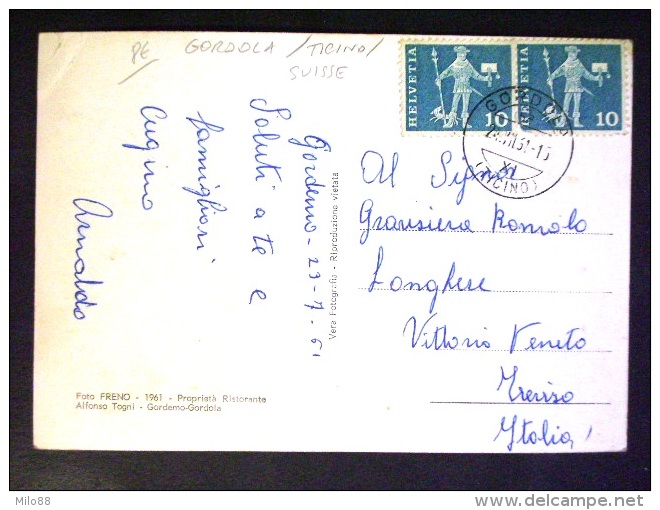 PE GORDOLA /TICINO/
SUISSE
HELVETIA 10
HELVETIA 10
GORDOLA
(TICINO)
Gordemo - 23-7.61
Saluti a te e
famigliari
Cugino
Arnaldo
Vera Fotografia - Riproduzione vietata
Al Signor
Romolo
Longhese
Vittorio Veneto
Treviso
Italia!
Foto FRENO - 1961 - Proprietà Ristorante
Alfonso Togni - Gordemo-Gordola
Milo88
delcampe.net